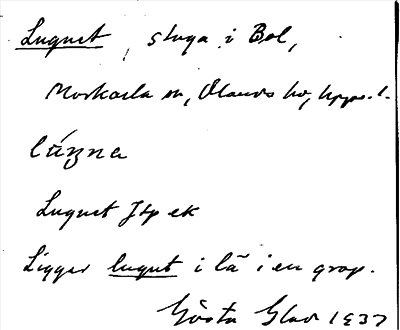 Lugnet, stuga i Bol,
Morkarla sn, Olands hd, Upps. l.
Lugnet Jsp ek
Ligger lugnt i lä i en grop.
Gösta Glad 1937